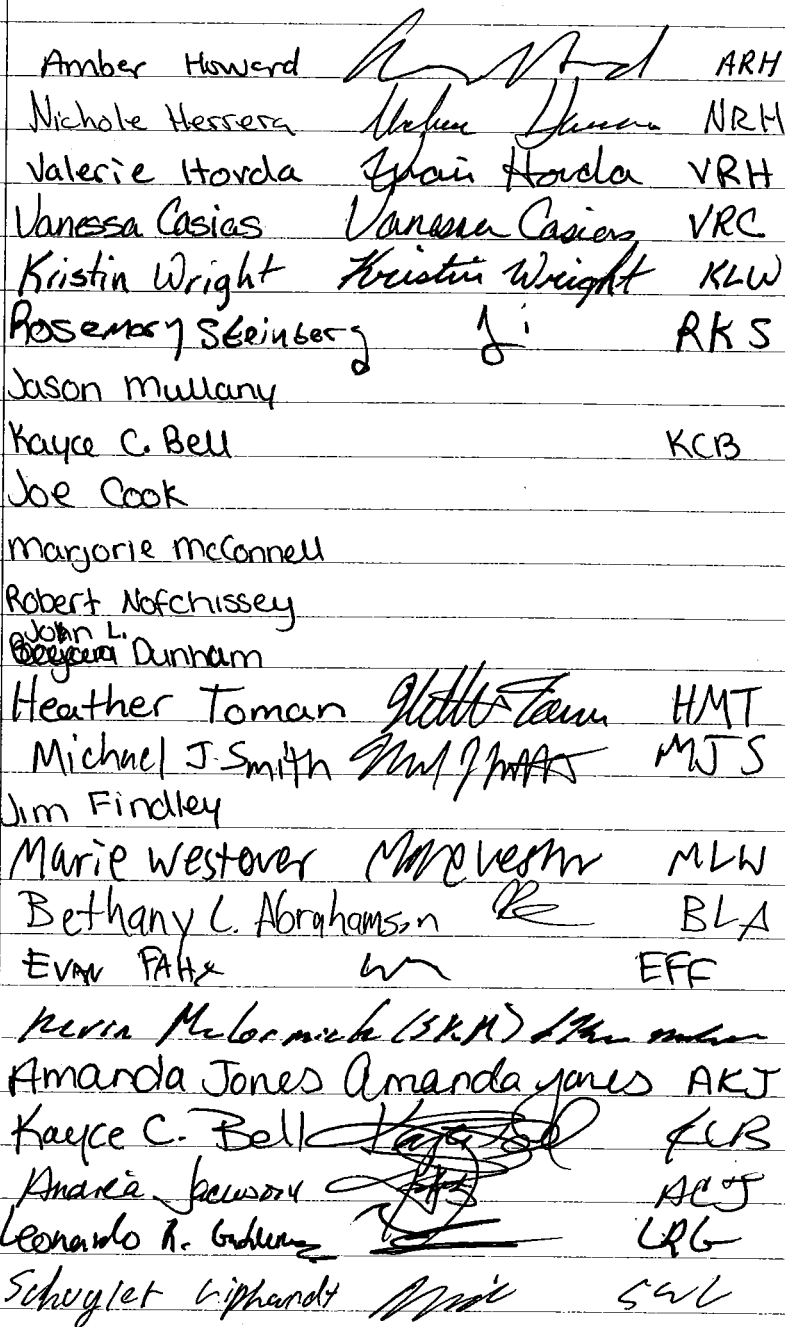 Amber Howard ARH
Nichole Herrera NRH
Valerie Hovda Hovda VRH
Vanessa Casias Vanessa Casias VRC
Kristin Wright Kristin Wright KLW
Rosemary Steinberg RKS
Jason Mullany
Kayce C. Bell KCB
Joe Cook
Marjorie McConnell
Robert Nofchissey
John L.
Dunham
Heather Toman HMT
Michael J. Smith MJS
Jim Findley
Marie Westover MLW
Bethany L. Abrahamson BLA
EVAN FAHY EFF
Kevin McCormick (SKM)
Amanda Jones Amanda Jones AKJ
Kayce C. Bell KCB
Andrea ACJ
Leonardo R. LRG
Schuyler Liphardt SWL